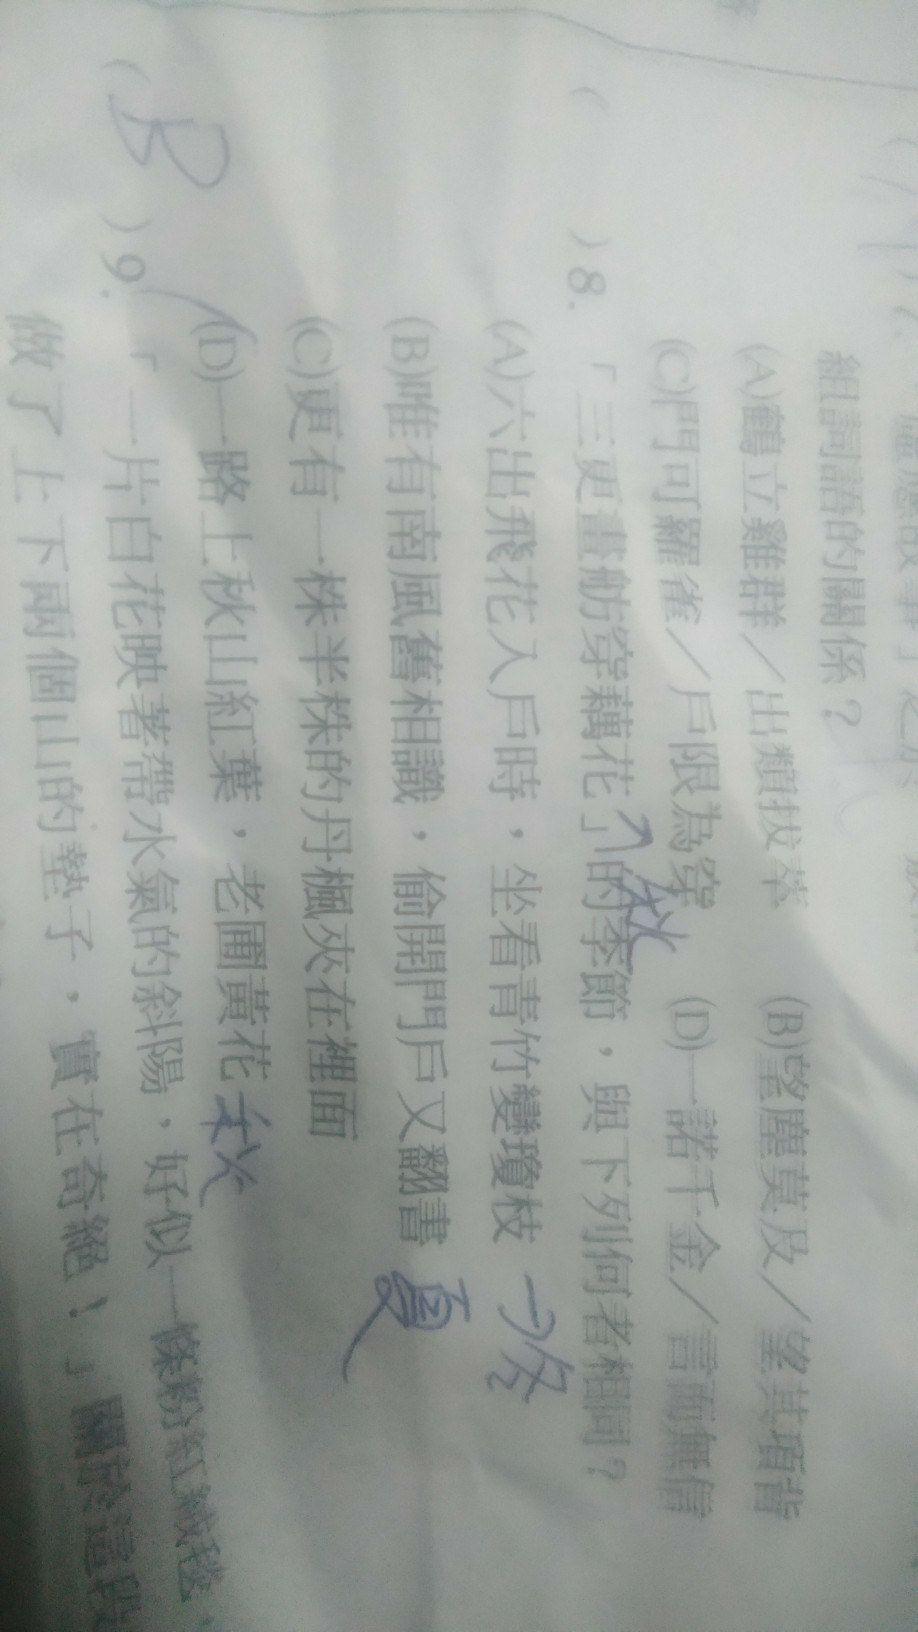 組詞語的關係？
(A)鶴立雞群／出類拔萃 (B)望塵莫及／望其項背
(C)門可羅雀／戶限為穿 (D)一諾千金／言而無信
( )8.「三更畫舫穿藕花」的季節，與下列何者相同？
秋
(A)六出飛花入戶時，坐看青竹變瓊枝 冬
(B)唯有南風舊相識，偷開門戶又翻書 夏
(C)更有一株半株的丹楓夾在裡面
(D)一路上秋山紅葉，老圃黃花 秋
(B)9.「一片白花映著帶水氣的斜陽，好似一條粉紅絨毯，
做了上下兩個山的墊子，實在奇絕！」關於這段